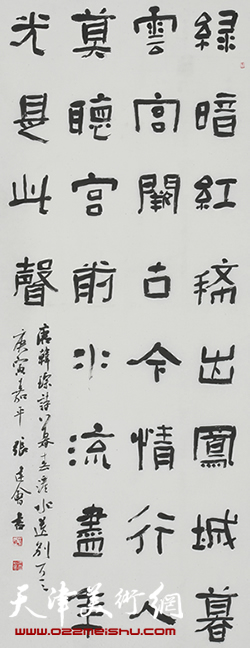 綠暗紅稀出鳳城暮
雲宮闕古今情行人
莫聽宮前水流盡年
光是此聲
唐韓琮詩暮春滻水送別
庚寅嘉平 張建會書
天津美術網
www.022meishu.com